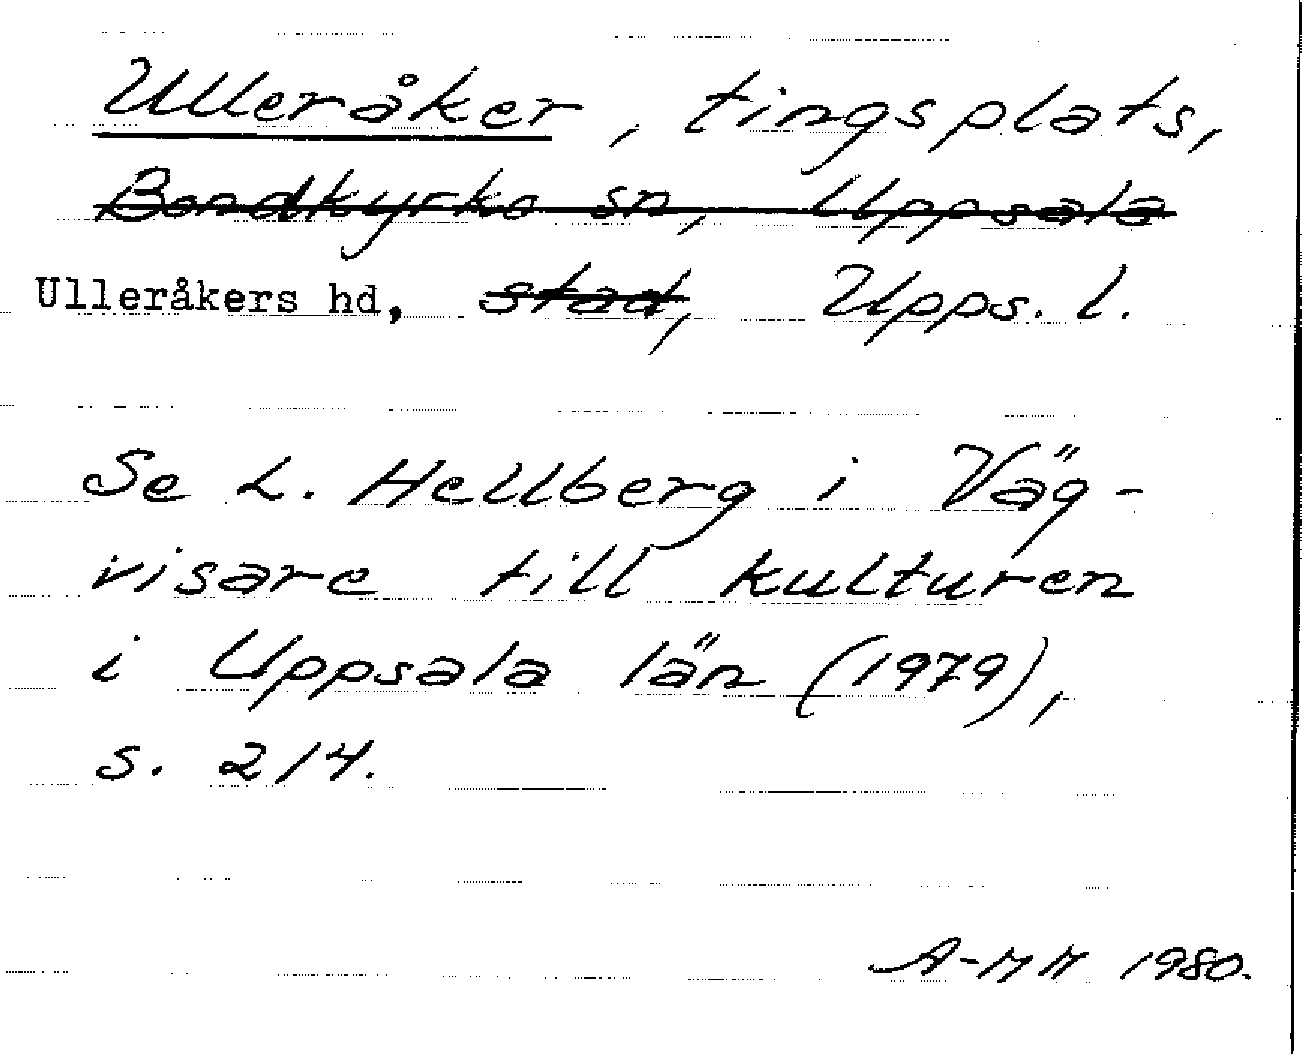 Ulleråker, tingsplats,
Bondkyrko sn, Uppsala
Ulleråkers hd, stad, Upps. l.
Se L. Hellberg i Väg-
visare till kulturen
i Uppsala län (1979),
s. 214.
A-MM 1980.